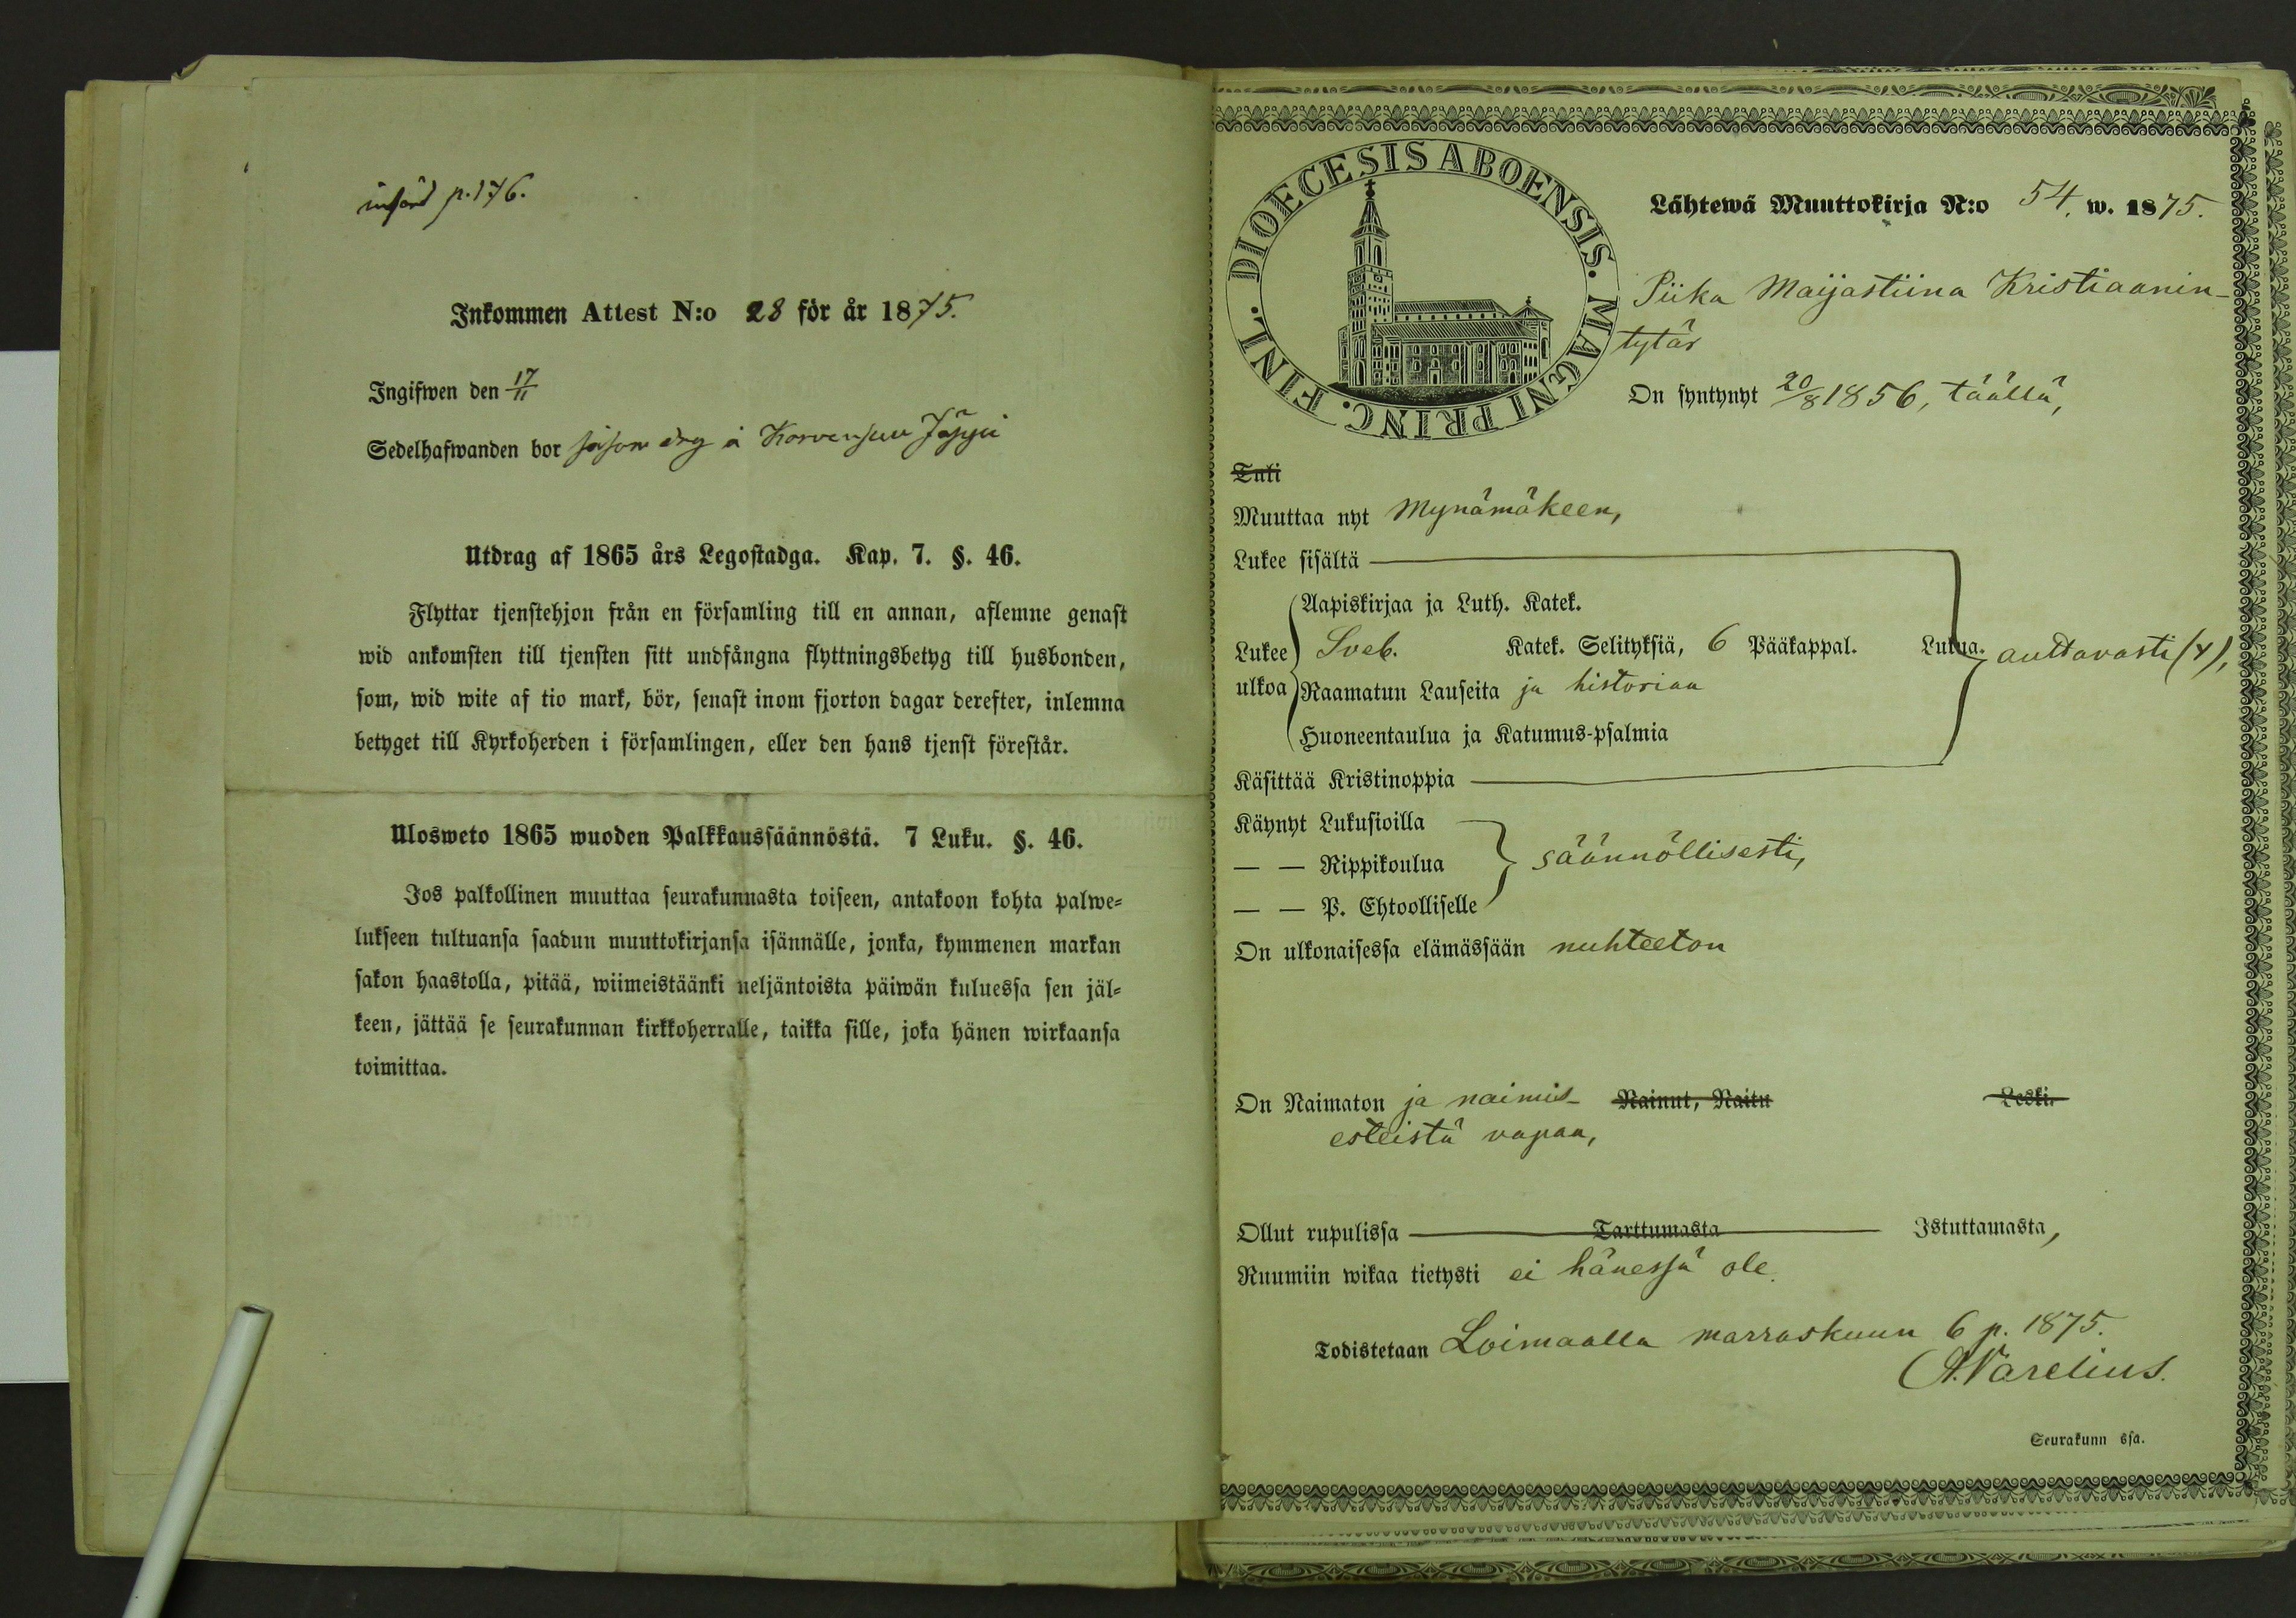 införd p. 176.
Inkommen Attest N:o 28 för år 1875.
Ingifwen den 17/11
Sedelhafwanden bor såsom drg å Korvensuu Jäppi
Utdrag af 1865 års Legostadga. Kap. 7. §. 46.
Flyttar tjenstehjon från en församling till en annan, aflemne genast
wid ankomsten till tjensten sitt undfångna flyttningsbetyg till husbonden,
som, wid wite af tio mark, bör, senast inom fjorton dagar derefter, inlemna
betyget till Kyrkoherden i församlingen, eller den hans tjenst förestår.
Ulosweto 1865 wuoden Palkkaussäännöstä. 7 Luku. §. 46.
Jos palkollinen muuttaa seurakunnasta toiseen, antakoon kohta palwe-
lukseen tultuansa saadun muuttokirjansa isännälle, jonka, kymmenen markan
sakon haastolla, pitää, wiimeistäänki neljäntoista päiwän kuluessa sen jäl-
keen, jättää se seurakunnan kirkkoherralle, taikka sille, joka hänen wirkaansa
toimittaa.
DIOECESIS ABOENSIS. MAGNI PRINC. FINL.
Lähtewä Muuttokirja N:o 54. w. 1875.
Piika Maijastiina Kristiaanin-
tytär
On syntynyt 20/8 1856, täällä,
Tuli
Muuttaa nyt Mynämäkeen,
Lukee sisältä
Aapiskirjaa ja Luth. Katek.
Lukee Sveb. Katek. Selityksiä, 6 Pääkappal. Lukua. auttavasti (4),
ulkoa Raamatun Lauseita ja historiaa
Huoneentaulua ja Katumus-psalmia
Käsittää Kristinoppia
Käynyt Lukusioilla
— — Rippikoulua säännöllisesti,
— — P. Ehtoolliselle
On ulkonaisessa elämässään nuhteeton
On Naimaton ja naimis- Nainut, Naitu Leski.
esteistä vapaa,
Ollut rupulissa Tarttumasta Istuttamasta,
Ruumiin wikaa tietysti ei hänessä ole.
Todistetaan Loimaalla marraskuun 6 p. 1875.
A. Varelius.
Seurakunn ssa.